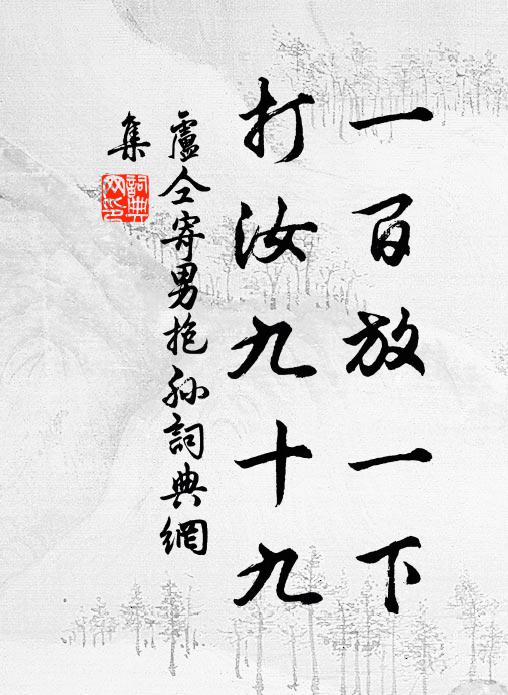 一百放一下
打汝九十九
盧仝寄男抱孫詞典網
集
詞典
网印